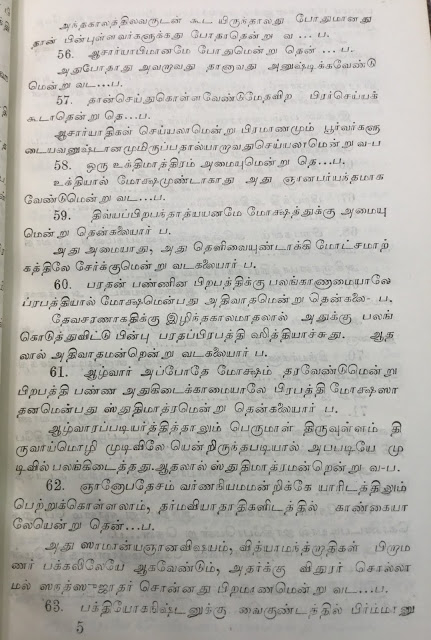 அந்தகாலத்திலவருடன் கூட யிருந்தாலது போதுமானது
தான் பின்புள்ளவர்களுக்கது போதாதென்று வ ... ப.
56. ஆசார்யாபிமானமே போதுமென்று தென் ... ப.
அதுபோதாது அவராவது தானாவது அனுஷ்டிக்கவேண்டு
மென்று வட...ப.
57. தான்செய்துகொள்ளவேண்டுமேதவிற பிரர்செய்யக்
கூடாதென்று தெ...ப.
ஆசார்யாதிகள் செய்யலாமென்று பிரமாணமும் பூர்வர்களு
டையவனுஷ்டானமுமிருப்பதால்யாராவதுசெய்யலாமென்று வ-ப
58. ஒரு உக்திமாத்திரம் அமையுமென்று தெ...ப.
உக்தியால் மோக்ஷமுண்டாகாது அது ஞானபர்யந்தமாக
வேண்டுமென்று வட...ப.
59. திவ்யப்பிரபந்தாத்யயனமே மோக்ஷத்துக்கு அமையு
மென்று தென்கலையார் ப.
அது அமையாது, அது தெளிவையுண்டாக்கி மோட்சமாற்
கத்திலே சேர்க்குமென்று வடகலையார் ப.
60. பரதன் பண்ணின பிறபத்திக்கு பலங்காணாமையாலே
ப்ரபத்தியால் மோக்ஷமென்பது அதிவாதமென்று தென்கலை- ப.
தேவசரணாகதிக்கு இழிந்தகாலமாதலால் அதுக்கு பலங்
கொடுத்துவிட்டு பின்பு பரதப்பிரபத்தி ஸித்தியாச்சுது. ஆத
லால் அதிவாதமன்றென்று வடகலையார் ப.
61. ஆழ்வார் அப்போதே மோக்ஷம் தரவேண்டுமென்று
பிறபத்தி பண்ண அதுகிடைக்காமையாலே பிரபத்தி மோக்ஷஸா
தனமென்பது ஸ்துதிமாத்ரமென்று தென்கலையார் ப.
ஆழ்வாரப்படியர்த்தித்தாலும் பெருமாள் திருவுள்ளம் தி
ருவாய்மொழி முடிவிலே யென்றிருந்தபடியால் அப்படியே மு
டிவில் பலங்கிடைத்தது.ஆதலால் ஸ்துதிமாத்ரமன்றென்று வ-ப.
62. ஞானோபதேசம் வர்ணநியமமன்றிக்கே யாரிடத்திலும்
பெற்றுக்கொள்ளலாம், தர்மவியாதாதிகளிடத்தில் காண்கையா
லேயென்று தென்...ப.
அது ஸாமான்யஞானவிஷயம், வித்யாமந்த்ராதிகள் பிராம
ணர் பக்கலிலேயே ஆகவேண்டும், அதர்க்கு விதுரர் சொல்லா
மல் ஸநத்ஸுஜாதர் சொன்னது பிறமாணமென்று வட...ப.
63. பக்தியோகநிஷ்டனுக்கு வைகுண்டத்தில் பிர்ம்மானு
5